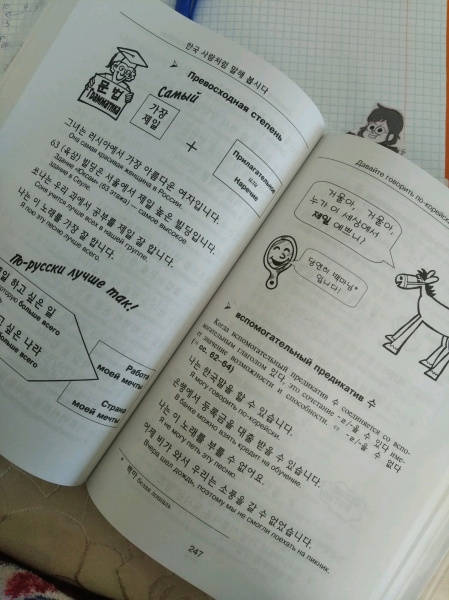 한국 사람처럼 말해 봅시다
Превосходная степень
문 법
Грамматика
Самый
가장
제일
+
Прилагательное
или
Наречие
그녀는 러시아에서 가장 아름다운 여자입니다.
Она самая красивая женщина в России.
63 (육삼) 빌딩은 서울에서 제일 높은 빌딩입니다.
Здание «Юксам» (63 этажа) — самое высокое
здание в Сеуле.
쏘냐는 우리 중에서 공부를 제일 잘 합니다.
Соня учится лучше всех в нашей группе.
나는 이 노래를 가장 잘 합니다.
Я пою эту песню лучше всего.
По-русски лучше так!
하고 싶은 일
больше всего
고 싶은 나라
больше всего
Работа
моей мечты
Страна
моей мечты
Давайте говорить по-корейски
거울아, 거울아,
누가 이 세상에서
제일 예쁘니?
당연히 백마님*
입니다!
вспомогательный предикатив 수
Когда вспомогательный предикатив 수 соединяется со вспо-
могательным глаголом 있다, это сочетание -ㄹ/을 수 있다 име-
ет значение возможности и способности.
(⇒ сс. 62–64)
-ㄹ/을 수 없다
나는 한국말을 할 수 있습니다.
Я могу говорить по-корейски.
은행에서 등록금을 대출 받을 수 있습니다.
В банке можно взять кредит на обучение.
나는 이 노래를 부를 수 없어요.
Я не могу петь эту песню.
어제 비가 와서 우리는 소풍을 갈 수 없었습니다.
Вчера шел дождь, поэтому мы не смогли поехать на пикник.
* 백마 белая лошадь
247